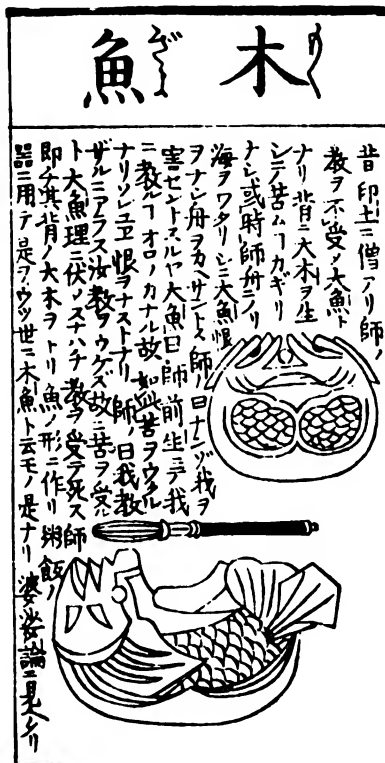 木魚
もくぎよ
昔印土ニ僧アリ師ノ
教ヲ不受ノ大魚ト
ナリ背ニ大木ヲ生
シテ苦ムヿカギリ
ナシ或時師舟ニノリ
海ヲワタリシニ大魚恨
ヲナシ舟ヲカヘサントス師ノ曰ナンゾ我ヲ
害セントスルヤ大魚曰師前生ニテ我
ニ教ルヿオロソカナル故如此苦ヲウクル
ナリソレユヱ恨ヲナストナリ師ノ曰我教
ザルニアラス汝教ヲウケズ故ニ苦ヲ受ル
ト大魚理ニ伏ノスナハチ教ヲ受テ死ス師
即チ其背ノ大木ヲトリ魚ノ形ニ作リ粥飯ノ
器ニ用テ是ヲウツ世ニ木魚ト云モノ是ナリ婆娑論ニ見ヘタリ